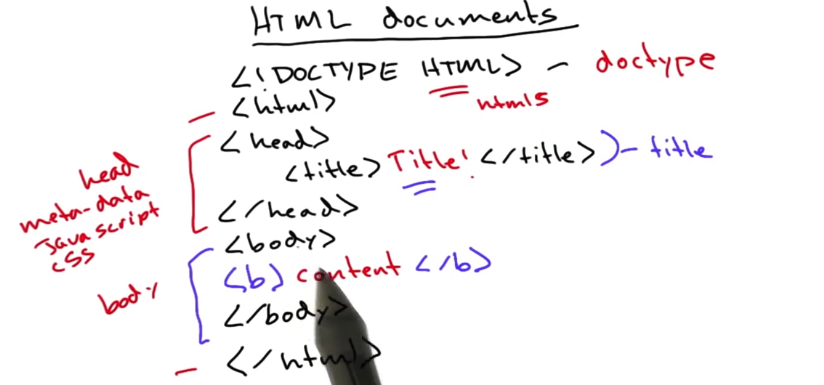 HTML documents
<!DOCTYPE HTML> - doctype
html5
<html>
<head>
<title> Title! </title> - title
</head>
head
meta-data
Javascript
CSS
<body>
<b> content </b>
body
</body>
</html>